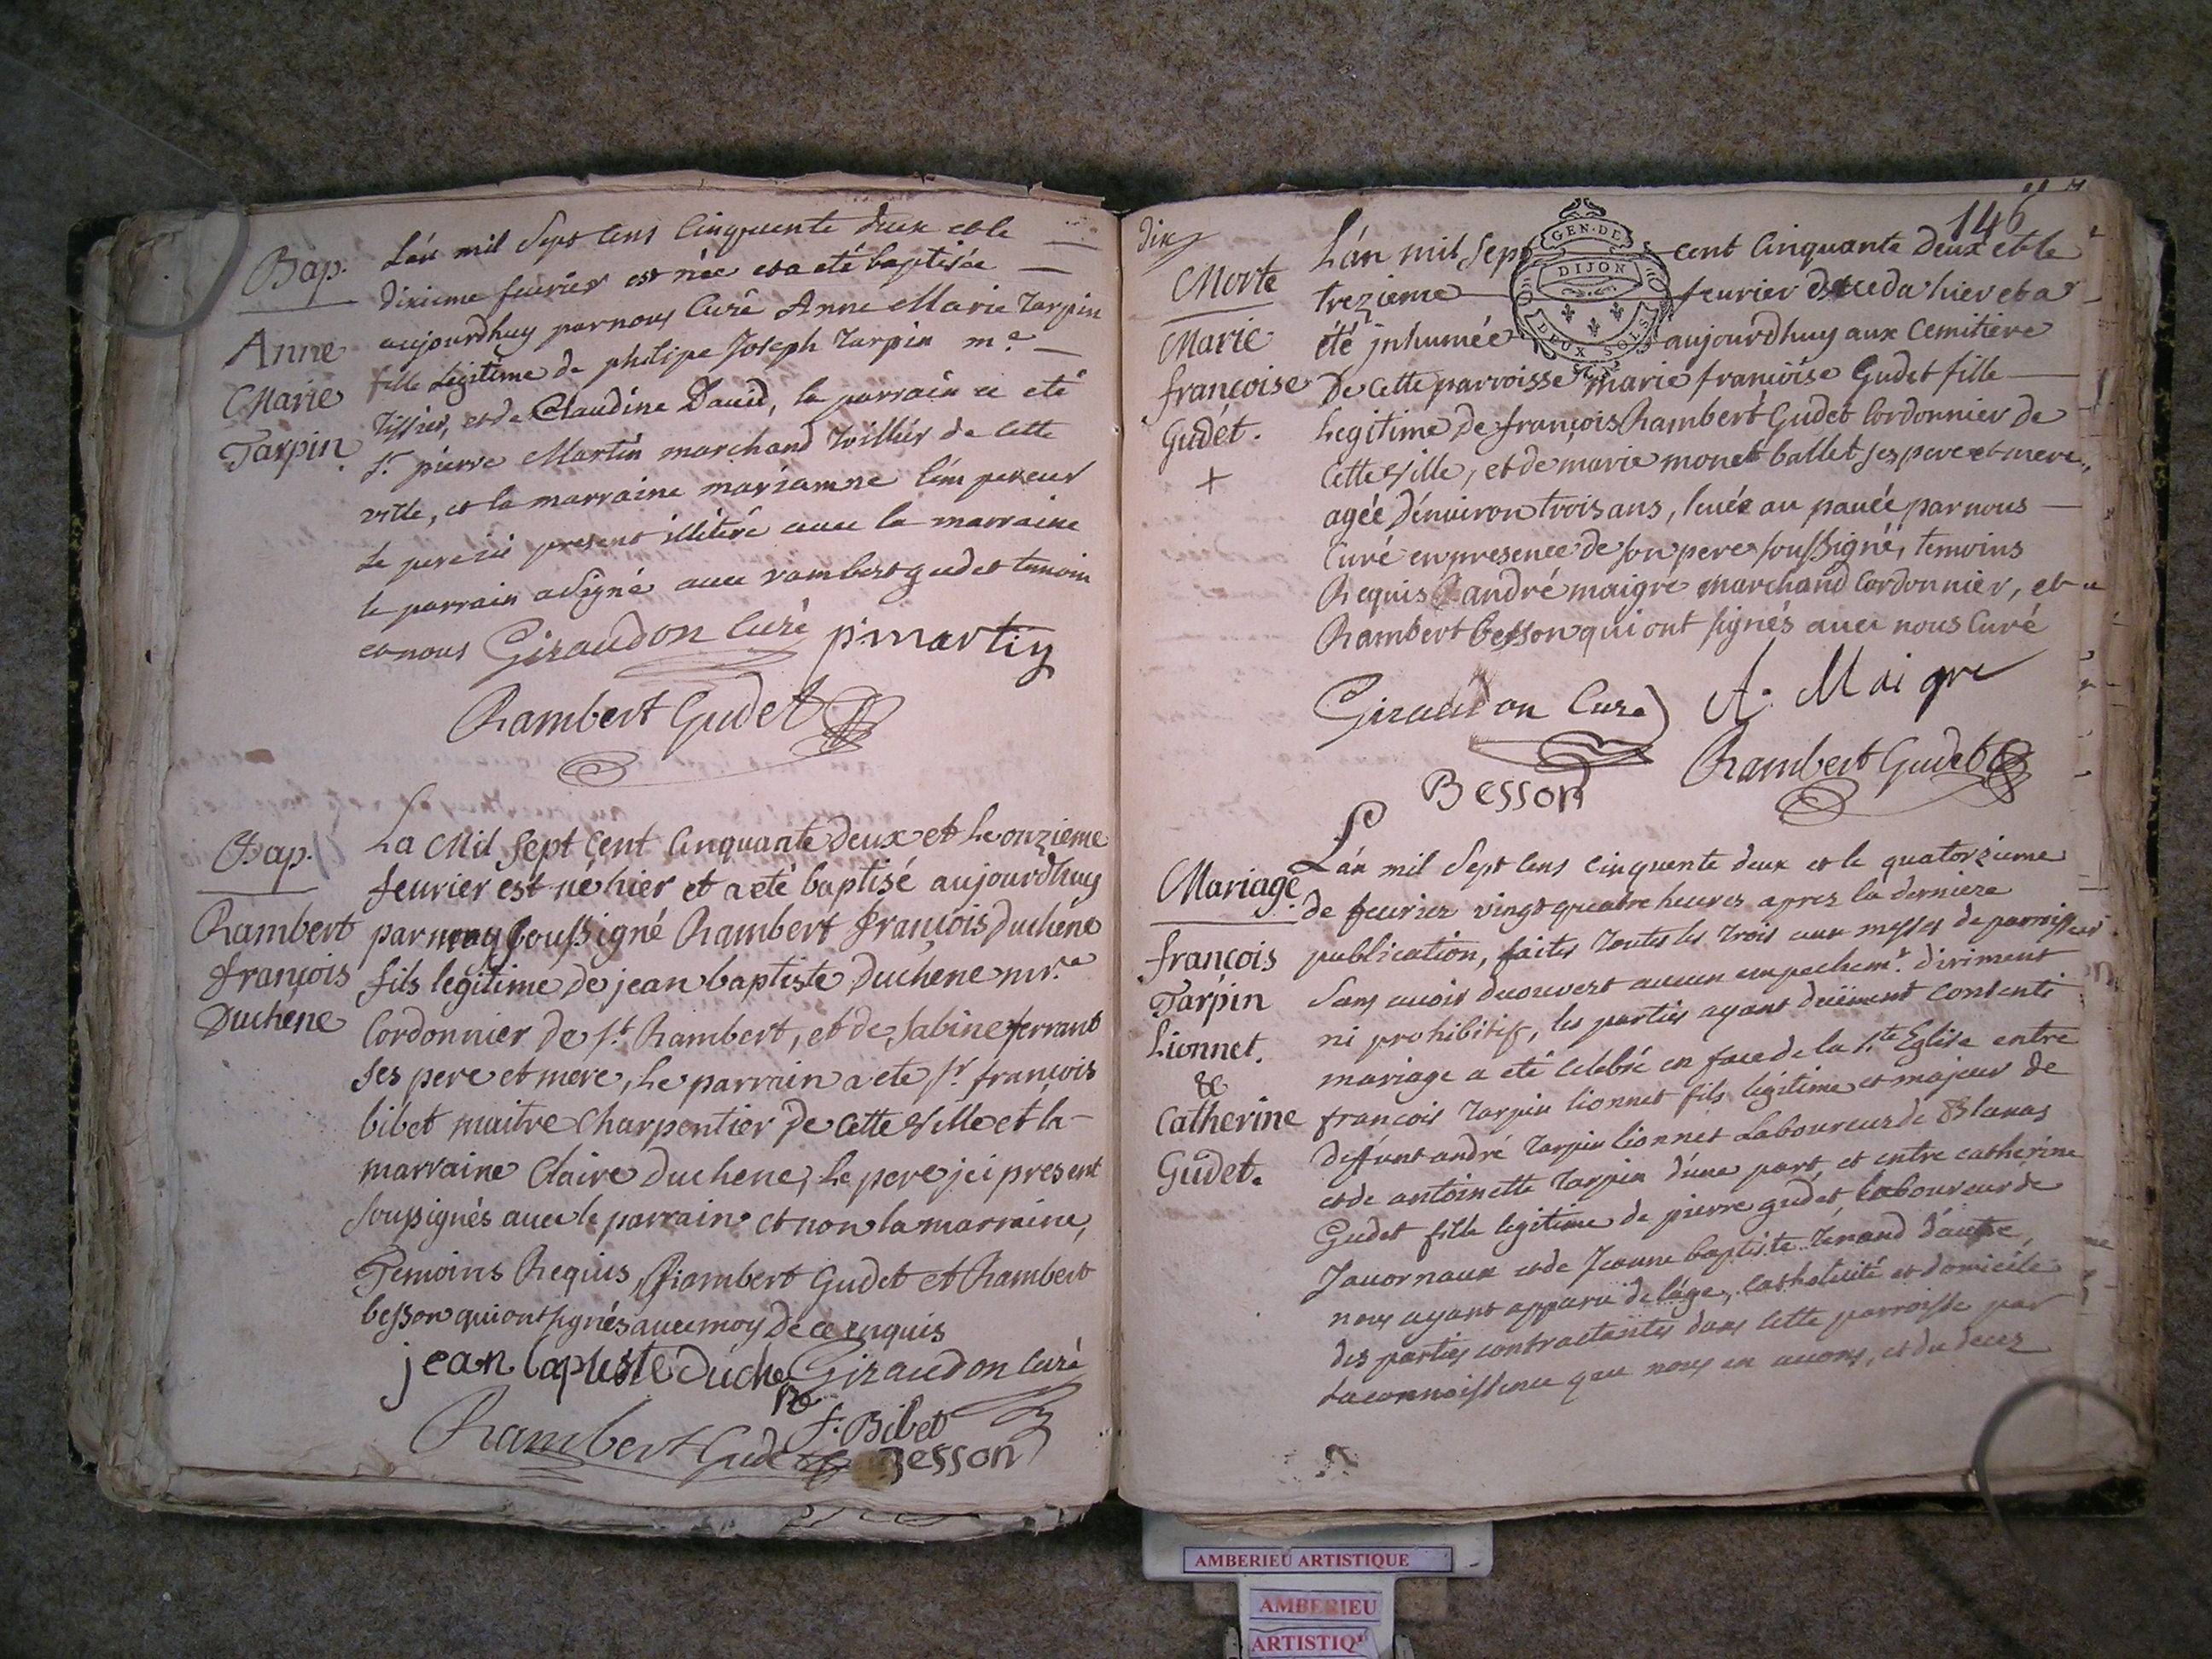 Bap.
Anne
Marie
Tarpin.
L'an mil Sept Cens Cinquente deux et le
dixieme feurier est née et a eté baptisée
aujourdhuy par nous Curé Anne Marie Tarpin
fille Légitime de philipe Joseph Tarpin m.e
Tissier, et de Claudine Dauid, le parrain a eté
s.r pierre Martin marchand Toillier de Cette
ville, et la marraine mariamne l'empereur
le pere ici present illiteré auec la marraine
le parrain a Signé auec rambert gudet temoin
et nous Giraudon Curé p. martin
Rambert Gudet
Bap.
Rambert
françois
Duchene
La Mil Sept Cent Cinquante deux et Le onzieme
feurier est né hier et a eté baptisé aujourdhuy
par moy soussigné Rambert françois Duchéne
fils legitime de jean baptiste Duchene mr.e
Cordonnier de S.t Rambert, et de Sabine ferrant
ses pere et mere, Le parrain a ete s.r françois
bibet maitre Charpentier de Cette Ville et la
marraine Claire Duchene, Le pere jci present
soussignés auec le parrain et non la marraine,
Temoins Requis, Rambert Gudet et Rambert
besson qui ont signés auec moy de ce enquis
jean baptiste duche Giraudon Curé
ne
f. Bibet
Rambert Gudet Besson
dix
146
GEN. DE
DIJON
DEUX SOLS
Morte
Marie
françoise
Gudet.
+
L'an mil Sept cent Cinquante Deux et le
trezieme feurier deceda hier et a
été jnhumée aujourdhuy aux Cemitiere
De Cette parroisse marie françoise Gudet fille
Legitime de françois Rambert Gudet Cordonnier de
Cette Ville, et de marie monet ballet ses pere et mere,
agée d'enuiron trois ans, leuée au pauée par nous
Curé en presence de son pere soussigné, temoins
Requis andré maigre marchand Cordonnier, et
Rambert besson qui ont signés auec nous Curé
Giraudon Curé A. Maigre
Besson Rambert Gudet
Mariage.
françois
Tarpin
Lionnet.
&
Catherine
Gudet.
L'an mil Sept Cens Cinquente deux et le quatorzieme
de feurier vingt quatre heures apres la derniere
publication, faites toutes les trois aux messes de parroisses
Sans auoir decouvert aucun empechem.t diriment
ni prohibitif, les parties ayant deüement consenti
mariage a eté celebré en face de la S.te Eglise entre
françois Tarpin lionnet fils légitime et majeur de
deffunt andré Tarpin lionnet Laboureur de Blanas
et de antoinette Tarpin d'une part, et entre catherine
Gudet fille legitime de pierre gudet laboureur de
Jauornaux et de Jeanne baptiste Tenand d'autre,
nous ayant apparu de l'age, catholicité et domicile
des parties contractantes dans cette parroisse par
la connoissence que nous en auons, et du decez
AMBERIEU ARTISTIQUE
AMBERIEU
ARTISTIQ